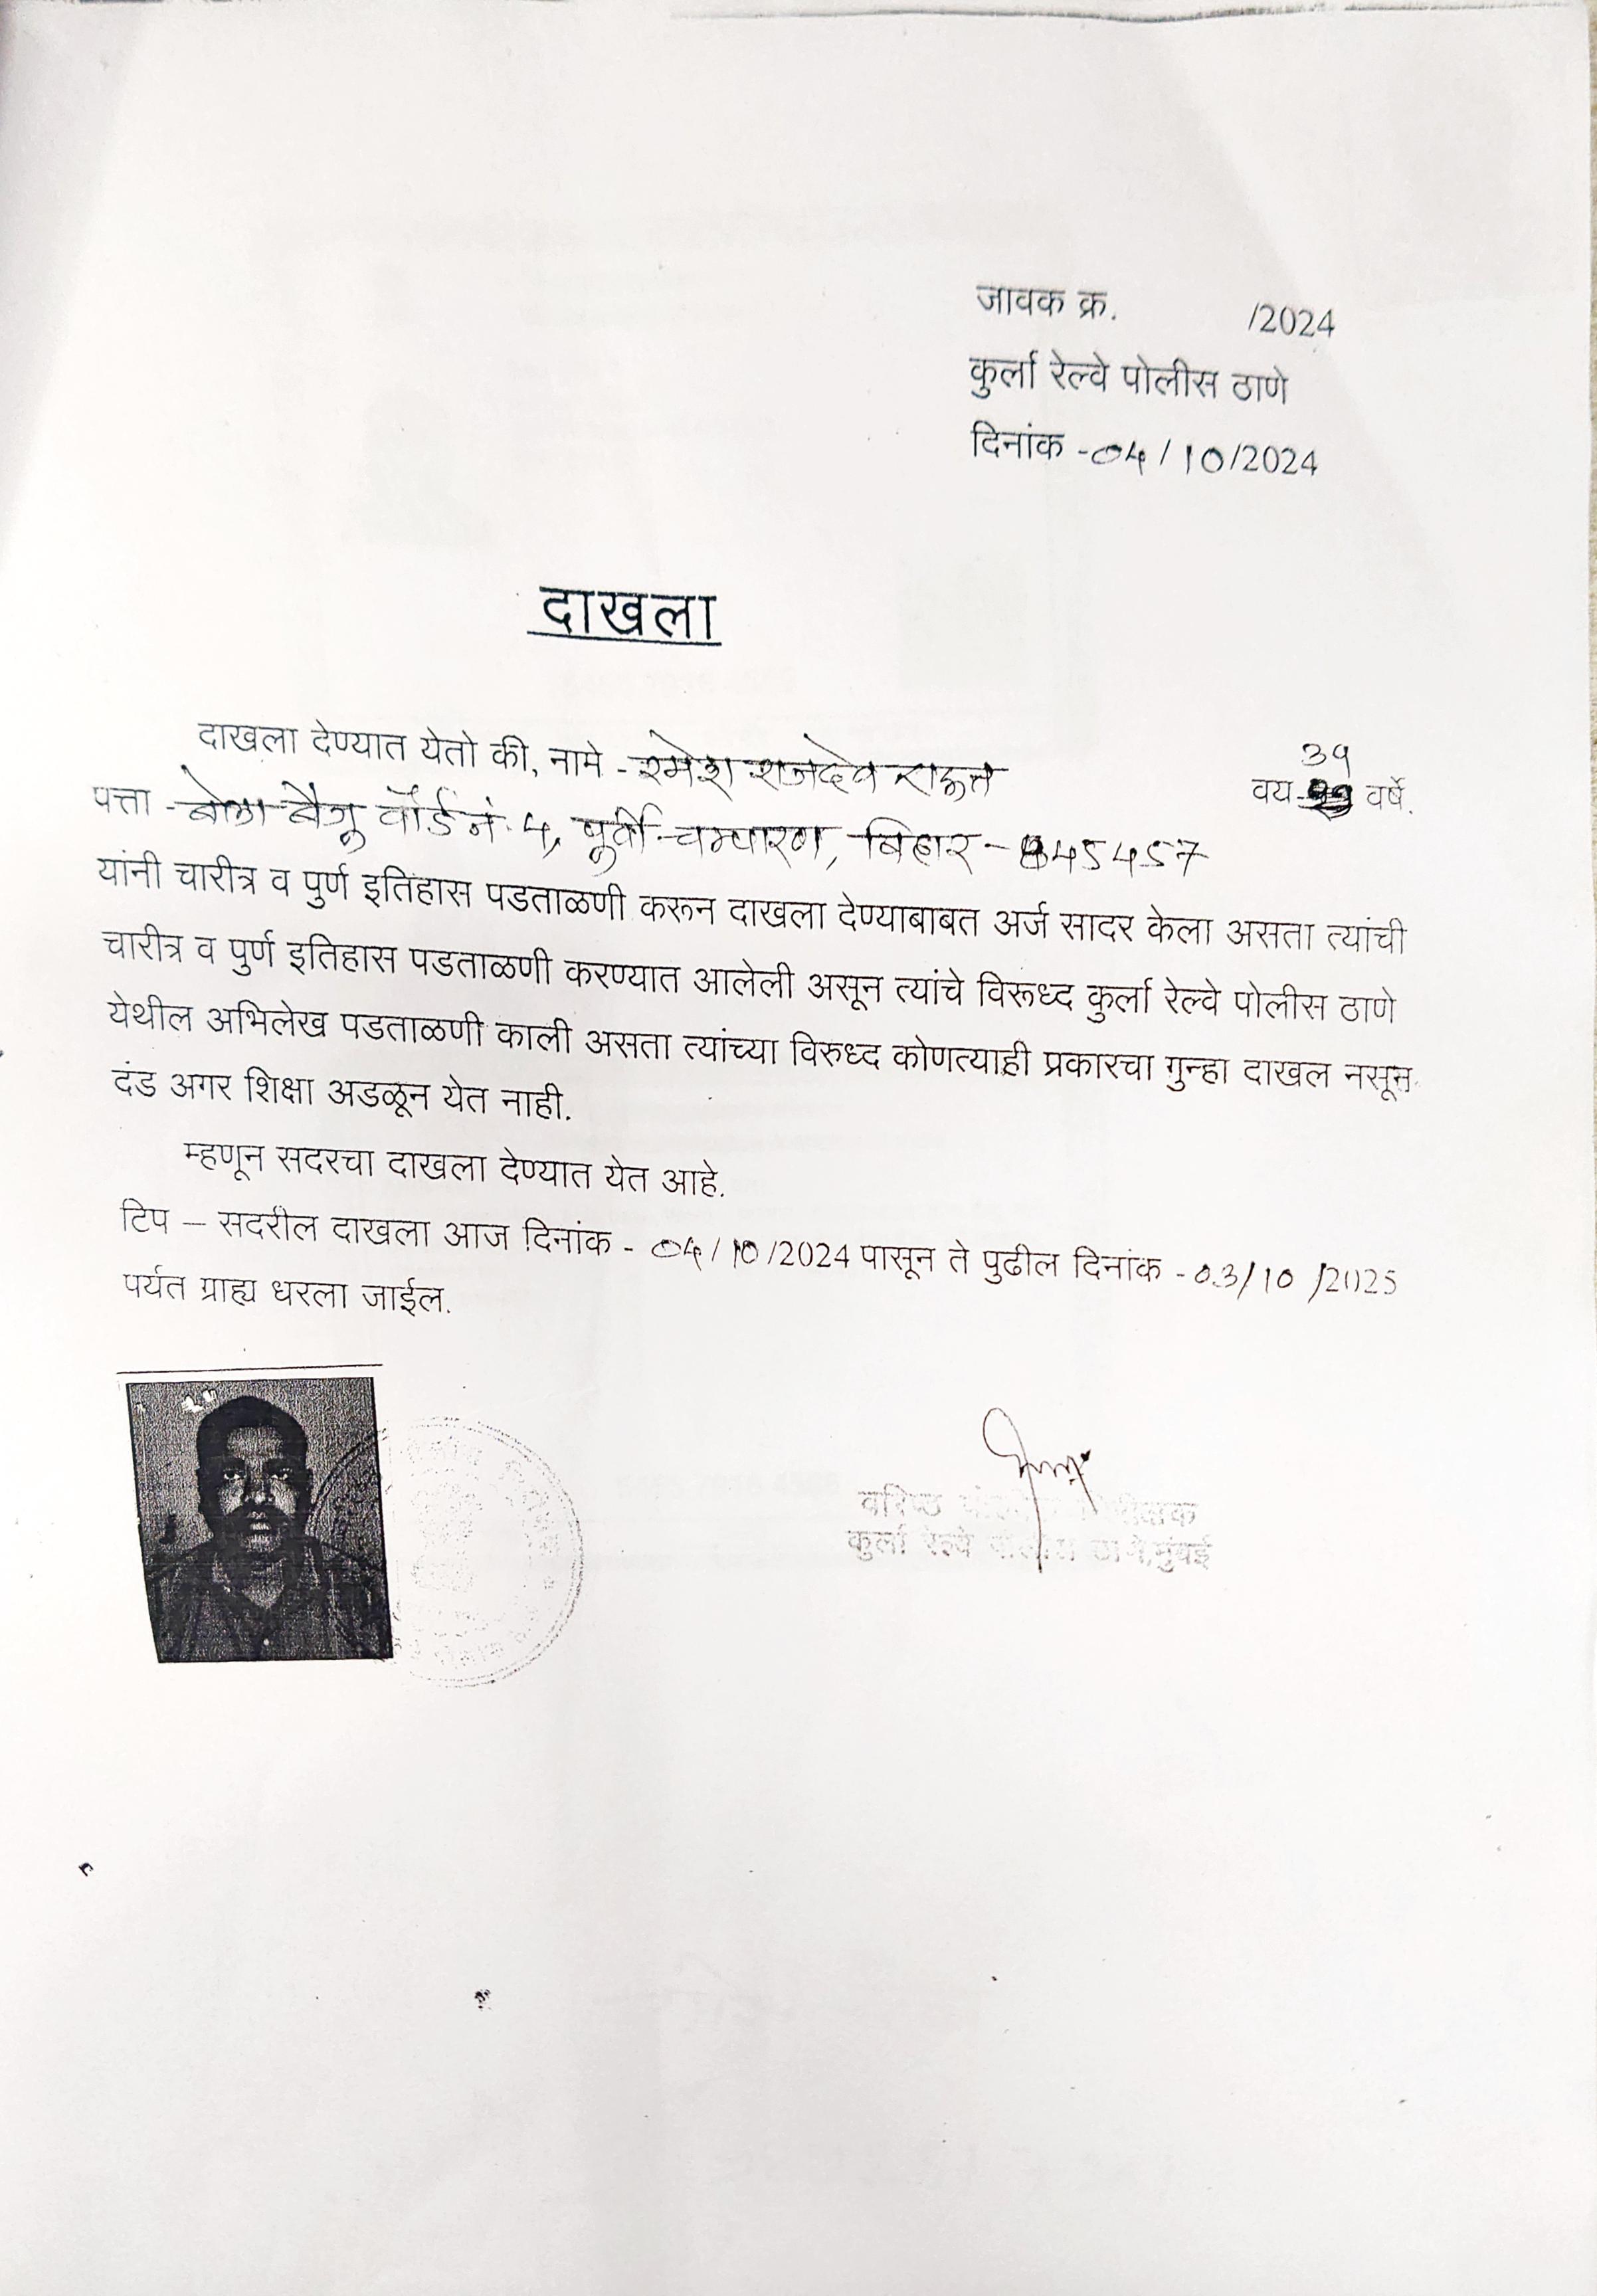 जावक क्र. /2024
कुर्ला रेल्वे पोलीस ठाणे
दिनांक -04/10/2024
दाखला
39
दाखला देण्यात येतो की, नामे - रमेश राजदेव राऊत वय- वर्षे.
पत्ता - बेला बैजू वॉर्ड नं. 4, पूर्वी चम्पारण, बिहार - 845457
यांनी चारीत्र व पुर्ण इतिहास पडताळणी करून दाखला देण्याबाबत अर्ज सादर केला असता त्यांची
चारीत्र व पुर्ण इतिहास पडताळणी करण्यात आलेली असून त्यांचे विरूध्द कुर्ला रेल्वे पोलीस ठाणे
येथील अभिलेख पडताळणी काली असता त्यांच्या विरुध्द कोणत्याही प्रकारचा गुन्हा दाखल नसून
दंड अगर शिक्षा अडळून येत नाही.
म्हणून सदरचा दाखला देण्यात येत आहे.
टिप – सदरील दाखला आज दिनांक - 04/10/2024 पासून ते पुढील दिनांक - 03/10/2025
पर्यत ग्राह्य धरला जाईल.
वरिष्ठ
कुर्ला रेल्वे पोलीस ठाणे,मुंबई